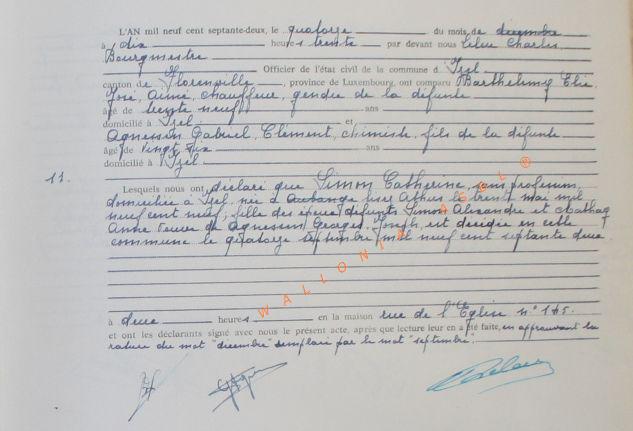 L'AN mil neuf cent septante-deux, le quatorze du mois de decembre
à dix heures trente par devant nous Charles
Bourgmestre
Officier de l'état civil de la commune d'Izel
canton de Florenville, province de Luxembourg, ont comparu Barthelemy Elie
José, Aimé, chauffeur, gendre de la défunte
âgé de trente neuf ans
domicilié à Izel et
Agnessen Gabriel, Clément, chimiste, fils de la défunte
âgé de vingt six ans
domicilié à Izel
11.
Lesquels nous ont déclaré que Simon Catherine, sans profession
domiciliée à Izel, née à Aubange Athus le trente mai mil
neuf cent neuf, fille des époux défunts Simon Alexandre et
Anne veuve de Agnessen Georges, Joseph, est décédée en cette
commune le quatorze septembre mil neuf cent septante deux
WALLONIA ASBL ®
à deux heures en la maison rue de l'Eglise n° 145.
et ont les déclarants signé avec nous le présent acte, après que lecture leur en a été faite, en approuvant la
rature du mot "decembre" remplacé par le mot "septembre".